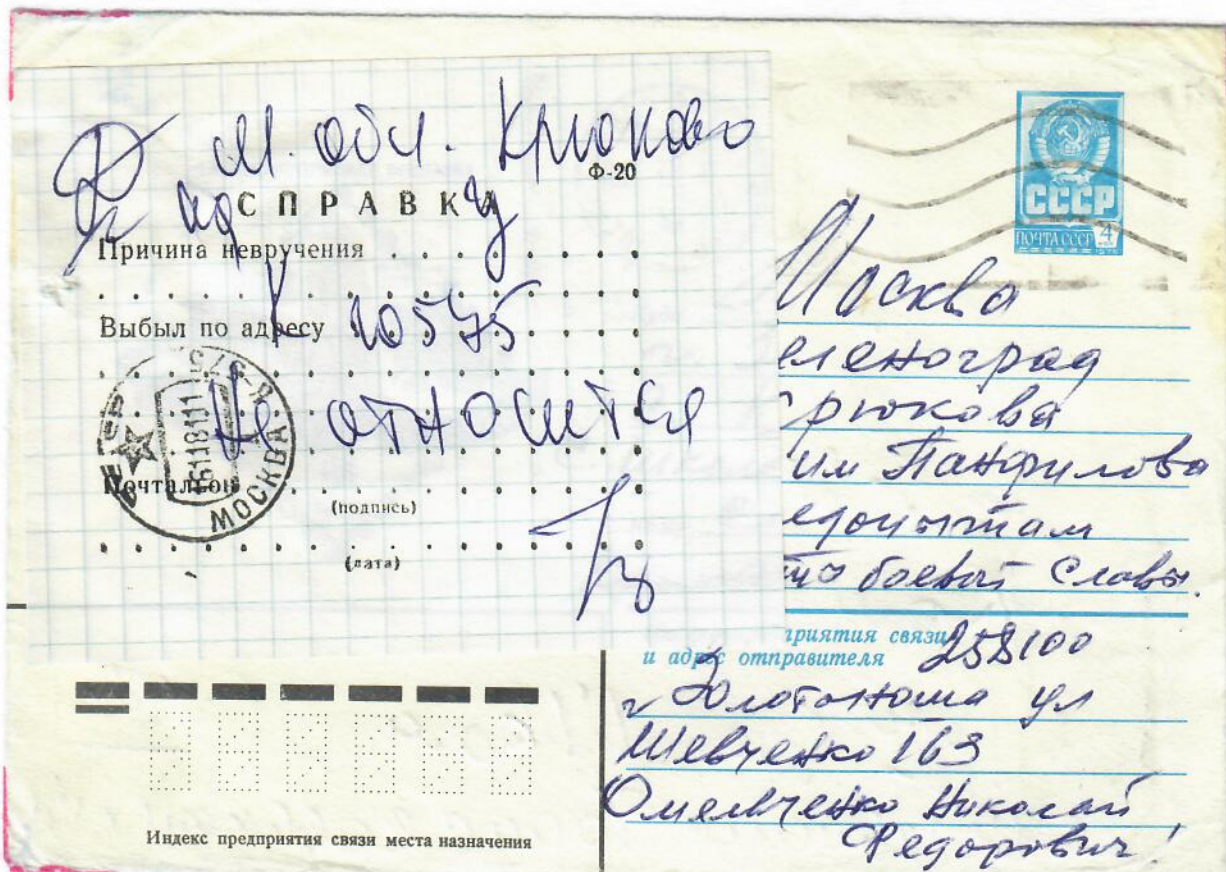 М. обл. Крюково
Ф-20
СПРАВКА
Причина невручения
Выбыл по адресу
К 10575
Не относится
Почтальон
(подпись)
(дата)
МОСКВА
СССР
ПОЧТА СССР 4
Москва
еленоград
рюкова
им Панфилова
едопытам
боевой Славы.
приятия связи
и адрес отправителя 258100
г Золотоноша ул
Шевченко 163
Омельченко Николай
Федорович!
Индекс предприятия связи места назначения